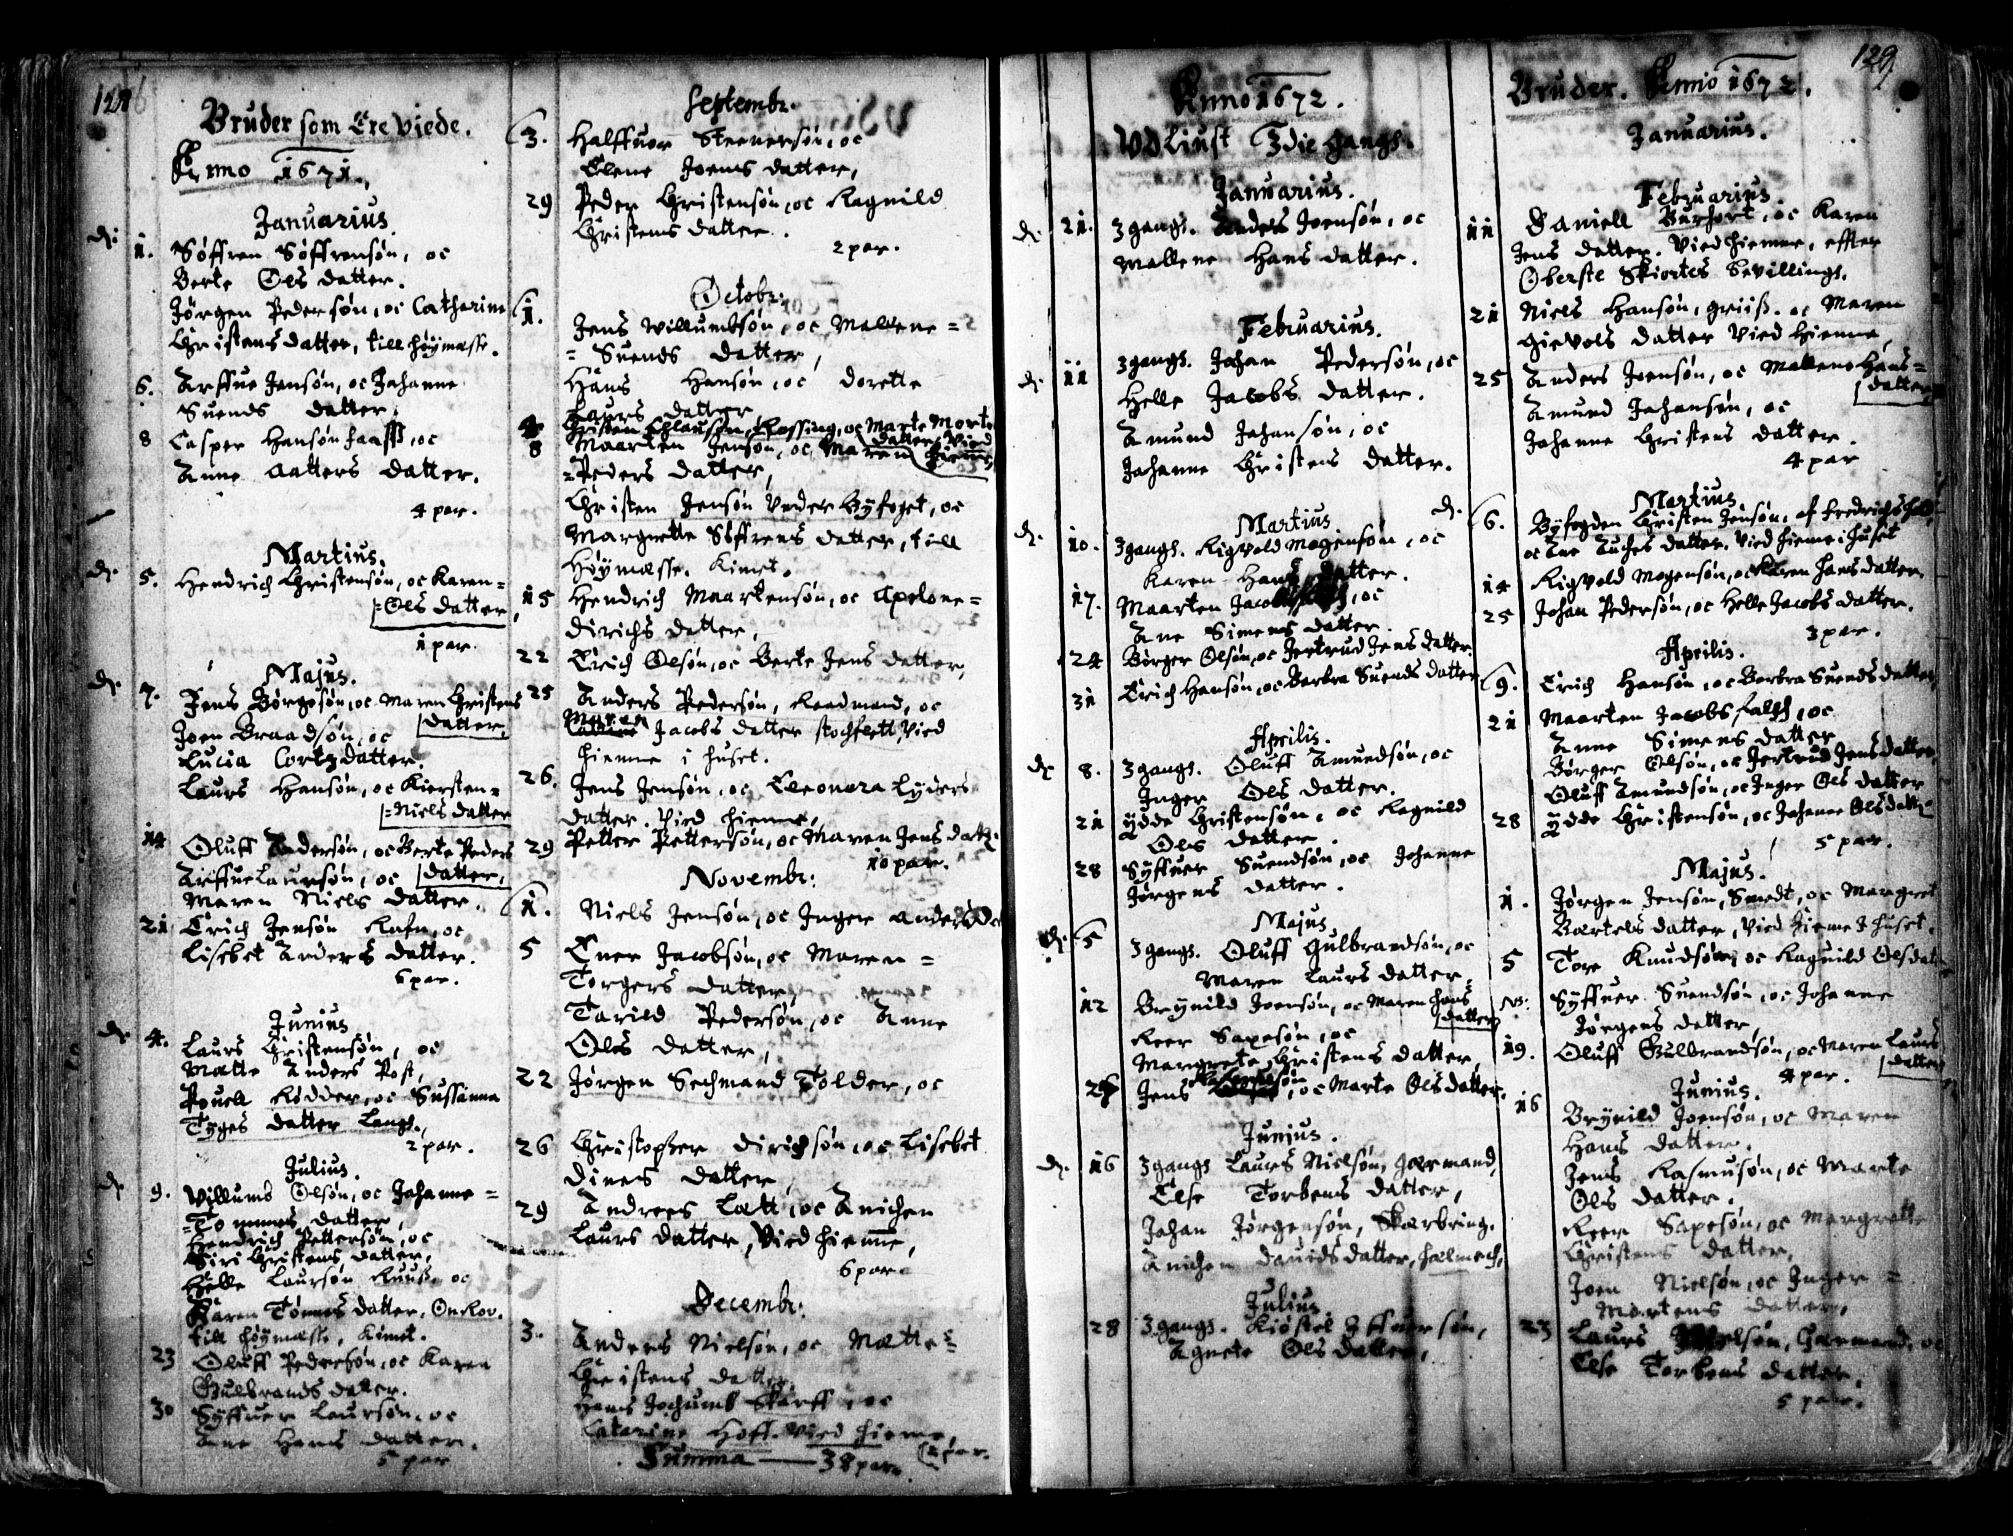 Bruder som Ere Viede.
Anno 1671.
Januarius.
di 1. Søffren Søffrensøn, oc
Berte Ols datter.
Jørgen Pedersøn, oc Catharina
Christens datter, till høymesse.
6. Arffue Jensøn, oc Johanne
Suends datter,
8 Casper Hansøn faass, oc
Anne Aatters datter.
4 par.
Martius.
di 5. Hendrich Christensøn, oc Karen=
=Ols datter
1 par.
Majus.
di 7. Jens Børgesøn, oc Maren Christens
datter,
Joen Braadsøn, oc
Lucia Cortzdatter.
Laurs Hansøn, oc Kiersten=
=Niels datter
14 Oluff Andersøn, oc Berte Peders
datter,
Arffue Laursøn, oc
Maren Niels datter.
21 Erich Jensøn Rafn, oc
Lisebet Anders datter.
6 par.
Junius
di 4. Laurs Christensøn, oc
Mette Anders Post,
Pouell Ridder, oc Sussanna
Tyges datter Lange,
2 par.
Julius.
di 9. Villums Olsøn, oc Johanne=
=Tommes datter,
Hendrich Pettersøn, oc
Siri Christens datter,
Helle Laursøn Ruus, oc
Karen Tønnes datter, Onsdov.
till høymesse, Kimet.
23 Oluff Pedersøn, oc Karen
Gulbrands datter.
30 Syffuer Laursøn, oc
Ane Hans datter.
5 par
Septembr.
3. Halffuor Steenersøn, oc
Elene Joens datter,
29 Peder Christensøn, oc Ragnild
Christens datter.
2 par.
Octobr:
1. Jens Willumbsøn, oc Mallene=
=Suends datter,
Hans Hansøn, oc Dorette
Laurs datter,
4 Christen Clausøn, Rossing, oc Marte Morts
datter, Vied
hieme,
8 Maarten Jensøn, oc Maren
=Peders datter,
Christen Jensøn Under Byfoget, oc
Margrette Søffrens datter, till
Høymesse. Kimet.
15 Hendrich Maartensøn, oc Apelone=
Dirichs datter,
22 Erich Olsøn, oc Berte Jens datter,
25 Anders Pedersøn, Raadmand, oc
Maren Jacobs datter Stochflett, Vied
hiemme i huset.
26. Jens Jensøn, oc Eleonora Lyders
datter. Vied hieme,
29 Petter Pettersøn, oc Maren Jens datt:
10 par.
Novembr:
1. Niels Jensøn, oc Inger Anders
5 Ener Jacobsøn, oc Maren=
Torgers datter,
Tarild Pedersøn, oc Anne
Ols datter,
22 Jørgen Sechmand Tolder, oc
26 Christopher Dirichsøn, oc Lisebet
Dines datter,
29 Andrees Latt, oc Anichen
Laurs datter, Vied hiemme,
6 par
Decembr:
3. Anders Nielsøn, oc Mette=
Christens datter.
Hans Jochumb Skarff, oc
Catarine Hoff. Vied hieme,
2 par.
Summa — 38 par.
Anno 1672.
Udliust 3die gang.
Januarius.
di 21. 3 gang. Anders Joensøn, oc
Mallene Hans datter.
Februarius.
di 11 3 gang. Johan Pedersøn, oc
Helle Jacobs datter.
Amund Johansøn, oc
Johanne Christens datter.
Martius
di 10. 3 gang. Rigvold Mogensøn, oc
Karen Hans datter.
17. Maarten Jacobs, oc
Ane Simens datter.
24 Børger Olsøn, oc Jertrud Jens datter
31 Erich Hansøn, oc Berbra Suends datter
Aprilis.
di 8. 3 gang. Oluff Amundsøn, oc
Inger Ols datter.
21 Ydde Christensøn, oc Ragnild
Ols datter.
28 Syffuer Suendsøn, oc Johanne
Jørgens datter.
Majus
di 5 3 gang. Oluff Gulbrandsøn, oc
Maren Laurs datter
12 Brynild Joensøn, oc Maren Hans
datter,
Reer Saxesøn, oc
Margrete Christens datter,
26 Jens Rasmusøn, oc Marte Ols datter.
Junius.
di 16 3 gang Laurs Nielsøn, Jærmand,
Else Torbens datter,
Johan Jørgensøn, Skarbring.
Anichen Dauids datter, Hælmech,
Julius.
28 3 gang. Kiøstel Iffuersøn,
Agnete Ols datter,
129
Bruder. Anno 1672.
Januarius.
Februarius
11 Daniell Burhart, oc Karen
Jens datter. Vied hieme, effter
Oberste Skiortes bevilling.
21 Niels Hansøn, Griiss. oc Maren
Gievols datter Vied Hiemme,
25 Anders Joensøn, oc Mallene Hans=
datter
Amund Johansøn, oc
Johanne Christens datter.
4 par
Martius
di 6. Byfogden Christen Jensøn, af Fredrichshald,
oc Ane Tuches datter. Vied hieme i huset
14 Rigvold Mogensøn, oc Karen Hans datter.
25 Johan Pedersøn, oc Helle Jacobs datter.
3 par.
Aprilis.
9. Erich Hansøn, oc Berbra Suends datter,
21 Maarten Jacobs Falch, oc
Anne Simens datter
Børger Olsøn, oc Jertrud Jens datter,
Oluff Amundsøn, oc Inger Ols datter
28 Ydde Christensøn, oc Johanne Ols datt:
5 par.
Majus.
1. Jørgen Jensøn, Smedt, oc Margret
Bærtels datter, Vied hieme i huset.
5 Tore Knudsøn, oc Ragnild Ols dat
NB: Syffuer Suendsøn, oc Johanne
Jørgens datter,
19. Oluff Gulbrandsøn, oc Maren Laurs
datter
4 par.
Junius.
16 Brynild Joensøn, oc Maren
Hans datter.
Jens Rasmusøn, oc Marte
Ols datter.
Reer Saxesøn, oc Margrette
Christens datter,
Joen Nielsøn, oc Inger=
Mortens datter,
23 Laurs Nielsøn, Jærmand, oc
Else Torbens datter,
5 par.